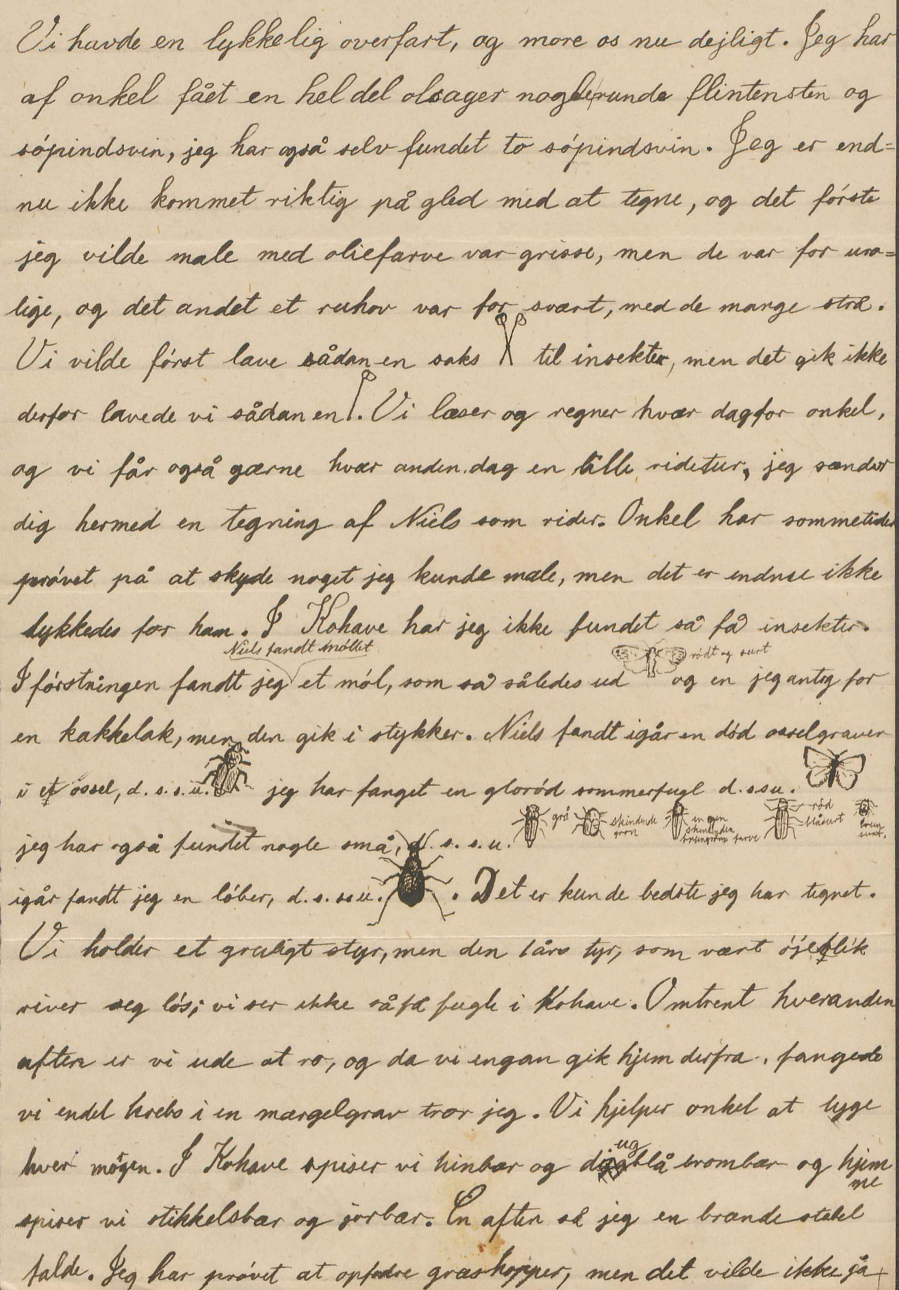 Vi havde en lykkelig overfart, og more os nu dejligt. Jeg har
af onkel fået en hel del olsager nogle runde flintensten og
sópindsvin, jeg har også selv fundet to sópindsvin. Jeg er end=
nu ikke kommet riktig på gled med at tegne, og det fórste
jeg vilde male med oliefarve var grisse, men de var for uro=
lige, og det andet et ruhov var for svært, med de mange strå.
Vi vilde fórst lave sådan en saks til insekter, men det gik ikke
derfor lavede vi sådan en. Vi læser og regner hvær dag for onkel,
og vi får også gærne hvær anden dag en lille ridetur, jeg sænder
dig hermed en tegning af Niels som rider. Onkel har sommetider
próvet på at skyde noget jeg kunde male, men det er endnu ikke
lykkedes for ham. I Kohave har jeg ikke fundet så få insekter.
Niels fandt móllet
ródt og surt
I fórstningen fandt jeg et mól, som så således ud og en jeg antog for
en kakkelak, men den gik i stykker. Niels fandt igår en dód osselgraver
i et óssel, d. s. s. u. jeg har fanget en gloród sommerfugl d. s. s u.
grå
skindende grón
ród
blåsurt
jeg har også fundet nogle små, d. s. s. u.
igår fandt jeg en lóber, d. s. s. u. Det er kun de bedste jeg har tegnet.
Vi holder et gruligt styr, men den lårs tyr, som vært ójeblik
river seg lós; vi ser ikke så få fugle i Kohave. Omtrent hveranden
aften er vi ude at ro, og da vi engan gik hjem derfra, fangede
vi endel krebs i en mærgelgrav tror jeg. Vi hjelper onkel at lyge
ug
hver mógen. I Kohave spiser vi hinbær og blå brombær og hjem
me
spiser vi stikkelsbær og jorbær. En aften så jeg en brænde stabel
falde. Jeg har próvet at opfodre græshopper, men det vilde ikke gå